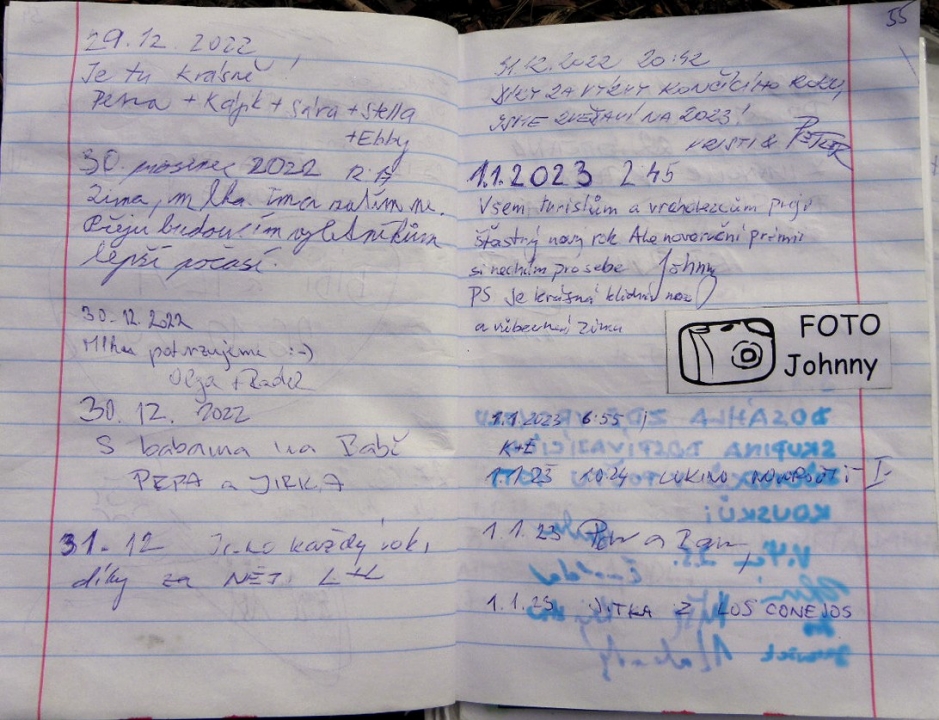 29.12. 2022
Je tu krásně
Petra + Kájik + Sára + Stella
+ Ebby
30. prosinec 2022
Zima, mlha. Tma zatím ne.
Přeju budoucím výletníkům
lepší počasí.
30.12.2022
Mlhu potvrzujeme :-)
Olga + Radek
30. 12. 2022
S babama na Babě
PEPA a JIRKA
31. 12 Jako každý rok,
díky za NĚJ L+L
55
31.12.2022 20:42
DÍKY ZA VÝZVY KONČÍCÍHO ROKU,
JSME ZVĚDAVÍ NA 2023!
KRISTI & PETER
1.1.2023 2 45
Všem turistům a vrcholezcům přeji
šťastný nový rok Ale novoroční prémii
si nechám pro sebe Johny
PS Je krásná klidná noc
a vůbec není zima
FOTO
Johnny
1.1.2023 6:55
K+E
1.1.23 10:24 I.
1.1.23 Petr a
1.1.23 JITKA Z LOS CONEJOS